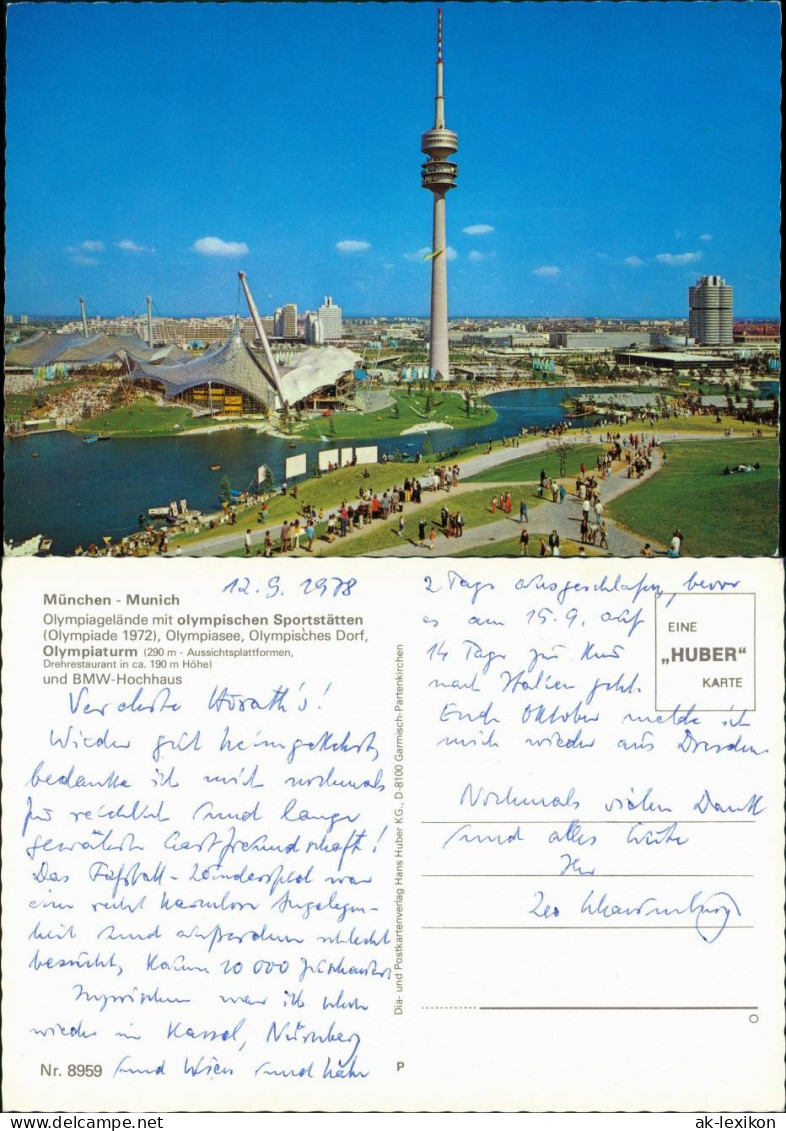 München - Munich
Olympiagelände mit olympischen Sportstätten
(Olympiade 1972), Olympiasee, Olympisches Dorf,
Olympiaturm (290 m - Aussichtsplattformen,
Drehrestaurant in ca. 190 m Höhe)
und BMW-Hochhaus
12.9. 1978
Verehrte Horath's!
Wieder gut heimgekehrt,
bedanke ich mich nochmals
für reichlich und lange
gewährte Gastfreundschaft!
Das Fußball-Länderspiel war
eine recht harmlose Angelegen-
heit und außerdem schlecht
besucht, kaum 10 000 Zuschauer.
Inzwischen war ich schon
wieder in Kassel, Nürnberg
und Wien und habe
Nr. 8959
Dia- und Postkartenverlag Hans Huber KG., D-8100 Garmisch-Partenkirchen
P
2 Tage ausgeschlafen, bevor
es am 15.9. auf
14 Tage zur Kur
nach Italien geht.
Ende Oktober melde ich
mich wieder aus Dresden.
Nochmals vielen Dank
und alles Gute
Ihr
EINE
„HUBER"
KARTE
ak-lexikon
ak-lexikon.com